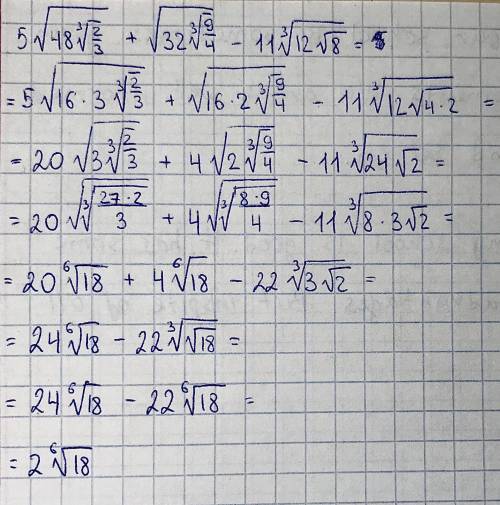 5√(48∛(2/3)) + √(32∛(9/4)) − 11∛(12√8) =
= 5√(16·3∛(2/3)) + √(16·2∛(9/4)) − 11∛(12√(4·2)) =
= 20√(3∛(2/3)) + 4√(2∛(9/4)) − 11∛(24√2) =
= 20√(∛(27·2/3)) + 4√(∛(8·9/4)) − 11∛(8·3√2) =
= 20⁶√18 + 4⁶√18 − 22∛(3√2) =
= 24⁶√18 − 22∛(√18) =
= 24⁶√18 − 22⁶√18 =
= 2⁶√18